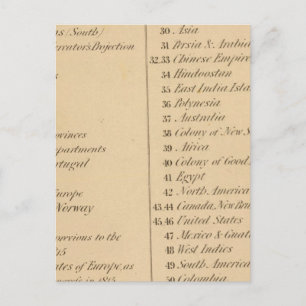 (South)
Mercator's Projection
Provinces
Departments
Portugal
Europe
Norway
previous to the
1815
States of Europe, as
in 1815
30 Asia
31 Persia & Arabia
32.33 Chinese Empire
34 Hindoostan
35 East India Islan
36 Polynesia
37 Australia
38 Colony of New S
39 Africa
40 Colony of Good
41 Egypt
42 North America
43.44 Canada, New Brun
45.46 United States
47 Mexico & Guate
48 West Indies
49 South America
50 Colombia